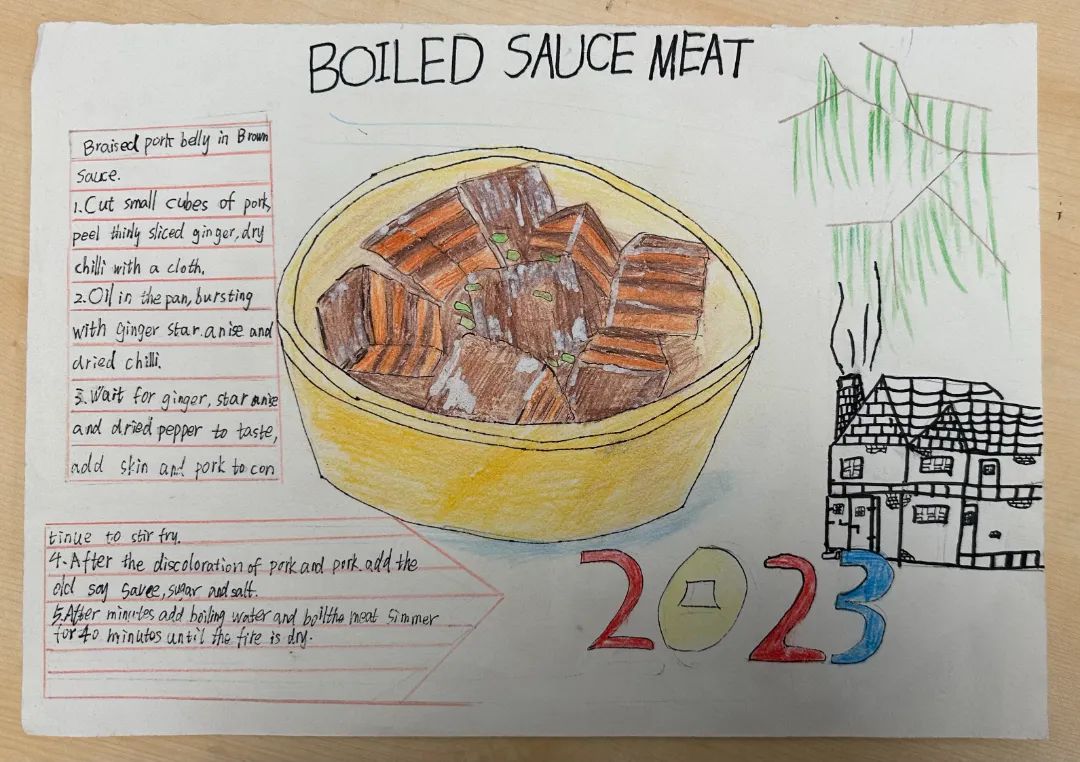 BOILED SAUCE MEAT
Braised pork belly in Brown
Sauce.
1.Cut small cubes of pork,
peel thinly sliced ginger,dry
chilli with a cloth.
2.Oil in the pan,bursting
with ginger star.anise and
dried chilli.
3.Wait for ginger, star anise
and dried pepper to taste,
add skin and pork to con
tinue to stir fry.
4.After the discoloration of pork and pork add the
old soy sauce,sugar and salt.
5.After minutes add boiling water and boilthe meat simmer
for 40 minutos until the fire is dry.
2023